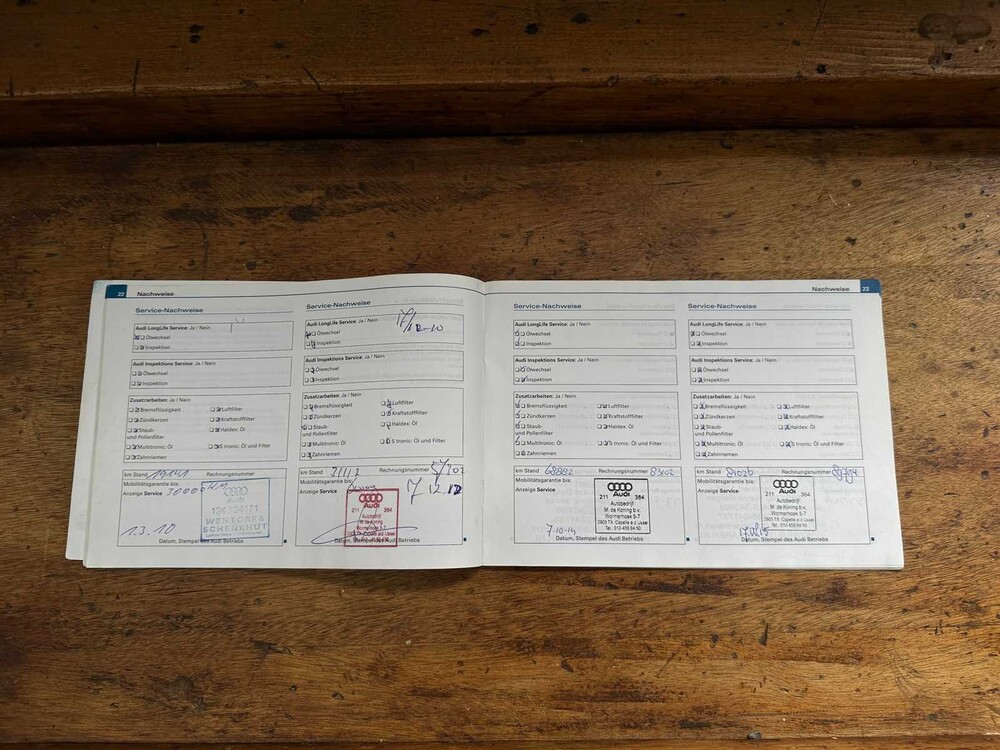 22 Nachweise
Service-Nachweise
Audi LongLife Service: Ja / Nein
Ölwechsel
Inspektion
Audi Inspektions Service: Ja / Nein
Ölwechsel
Inspektion
Zusatzarbeiten: Ja / Nein
Bremsflüssigkeit Luftfilter
Zündkerzen Kraftstofffilter
Staub- Haldex: Öl
und Pollenfilter
Multitronic: Öl S tronic: Öl und Filter
Zahnriemen
km Stand Rechnungsnummer
Mobilitätsgarantie bis:
Anzeige Service 30000 KM
Audi
WENTORF &
SCHENKHUT
1.3.10
Datum, Stempel des Audi Betriebs
Service-Nachweise
Audi LongLife Service: Ja / Nein
Ölwechsel
Inspektion
Audi Inspektions Service: Ja / Nein
Ölwechsel
Inspektion
Zusatzarbeiten: Ja / Nein
Bremsflüssigkeit Luftfilter
Zündkerzen Kraftstofffilter
Staub- Haldex: Öl
und Pollenfilter
Multitronic: Öl S tronic: Öl und Filter
Zahnriemen
km Stand Rechnungsnummer
Mobilitätsgarantie bis:
Anzeige Service
Audi
211 364
Autobedrijf
M. de Koning b.v.
Wormerhoek 5-7
Datum, Stempel des Audi Betriebs
Nachweise 23
Service-Nachweise
Audi LongLife Service: Ja / Nein
Ölwechsel
Inspektion
Audi Inspektions Service: Ja / Nein
Ölwechsel
Inspektion
Zusatzarbeiten: Ja / Nein
Bremsflüssigkeit Luftfilter
Zündkerzen Kraftstofffilter
Staub- Haldex: Öl
und Pollenfilter
Multitronic: Öl S tronic: Öl und Filter
Zahnriemen
km Stand 68882 Rechnungsnummer 83102
Mobilitätsgarantie bis:
Anzeige Service
Audi
211 364
Autobedrijf
M. de Koning b.v.
Wormerhoek 5-7
2905 TX Capelle a/d IJssel
Tel. 010-458 94 50
7-10-14
Datum, Stempel des Audi Betriebs
Service-Nachweise
Audi LongLife Service: Ja / Nein
Ölwechsel
Inspektion
Audi Inspektions Service: Ja / Nein
Ölwechsel
Inspektion
Zusatzarbeiten: Ja / Nein
Bremsflüssigkeit Luftfilter
Zündkerzen Kraftstofffilter
Staub- Haldex: Öl
und Pollenfilter
Multitronic: Öl S tronic: Öl und Filter
Zahnriemen
km Stand Rechnungsnummer
Mobilitätsgarantie bis:
Anzeige Service
Audi
211 364
Autobedrijf
M. de Koning b.v.
Wormerhoek 5-7
2905 TX Capelle a/d IJssel
Tel. 010-458 94 50
Datum, Stempel des Audi Betriebs